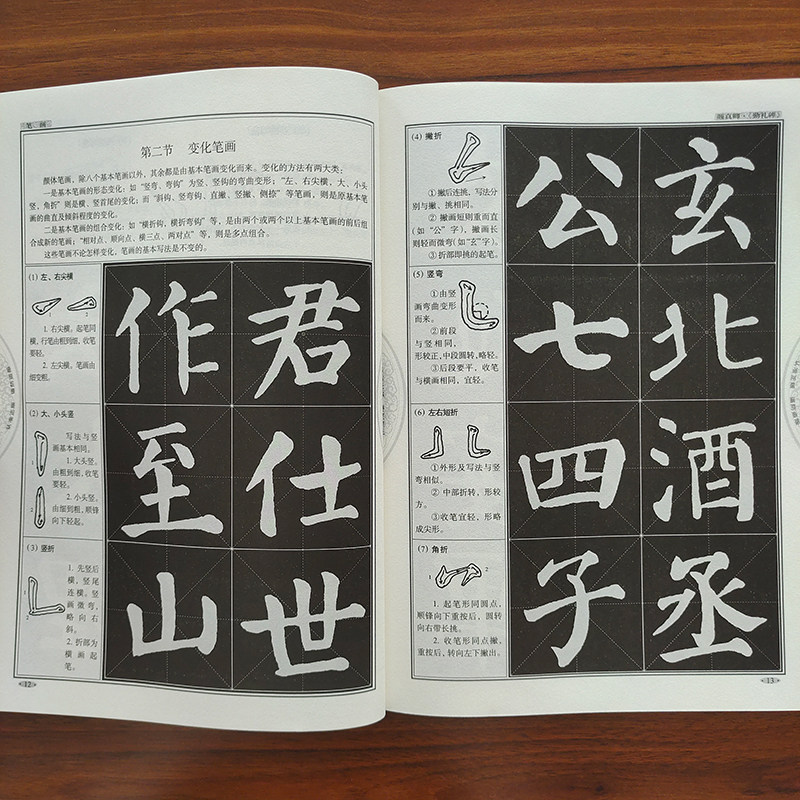 笔 画
第二节 变化笔画
颜体笔画，除八个基本笔画以外，其余都是由基本笔画变化而来。变化的方法有两大类：
一是基本笔画的形态变化：如“竖弯、弯钩”为竖、竖钩的弯曲变形；“左、右尖横，大、小头
竖，角折”则是横、竖首尾的变化；而“斜钩、竖弯钩、直撇、竖撇、侧捺”等笔画，则是原基本笔
画的曲直及倾斜程度的变化。
二是基本笔画的组合变化：如“横折钩，横折弯钩”等，是由两个或两个以上基本笔画的前后组
合成新的笔画；“相对点、顺向点、横三点、两对点”等，则是多点组合。
这些笔画不论怎样变化，笔画的基本写法是不变的。
(1) 左、右尖横
1 2
1. 右尖横，起笔同
横，行笔由粗到细，收笔
要轻。
2. 左尖横，笔画由
细变粗。
作 君
(2) 大、小头竖
写法与竖
画基本相同。
1. 大头竖，
由粗到细，收笔
要轻。
2. 小头竖，
由细到粗，顺锋
向下轻起。
1
2
至 仕
(3) 竖折
1. 先竖后
横，竖尾
连横。竖
画微弯，
略向右
斜。
2. 折部为
横画起
笔。
1
2
山 世
12
颜真卿·《勤礼碑》
(4) 撇折
①撇后连挑，写法分
别与撇、挑相同。
②撇画短则重而直
(如“公”字)，撇画长
则轻而微弯(如“玄”字)。
③折部即挑的起笔。
公 玄
(5) 竖弯
①由竖
画弯曲变形
而来。
②前段
与竖相同，
形较正，中段圆转，略轻。
③后段要平，收笔
与横画相同，宜轻。
七 北
(6) 左右短折
①外形及写法与竖
弯相似。
②中部折转，形较
方。
③收笔宜轻，形略
成尖形。
四 酒
(7) 角折
1 2
1. 起笔形同圆点，
顺锋向下重按后，圆转
向右带长挑。
2. 收笔形同点撇，
重按后，转向左下撇出。
子 丞
13